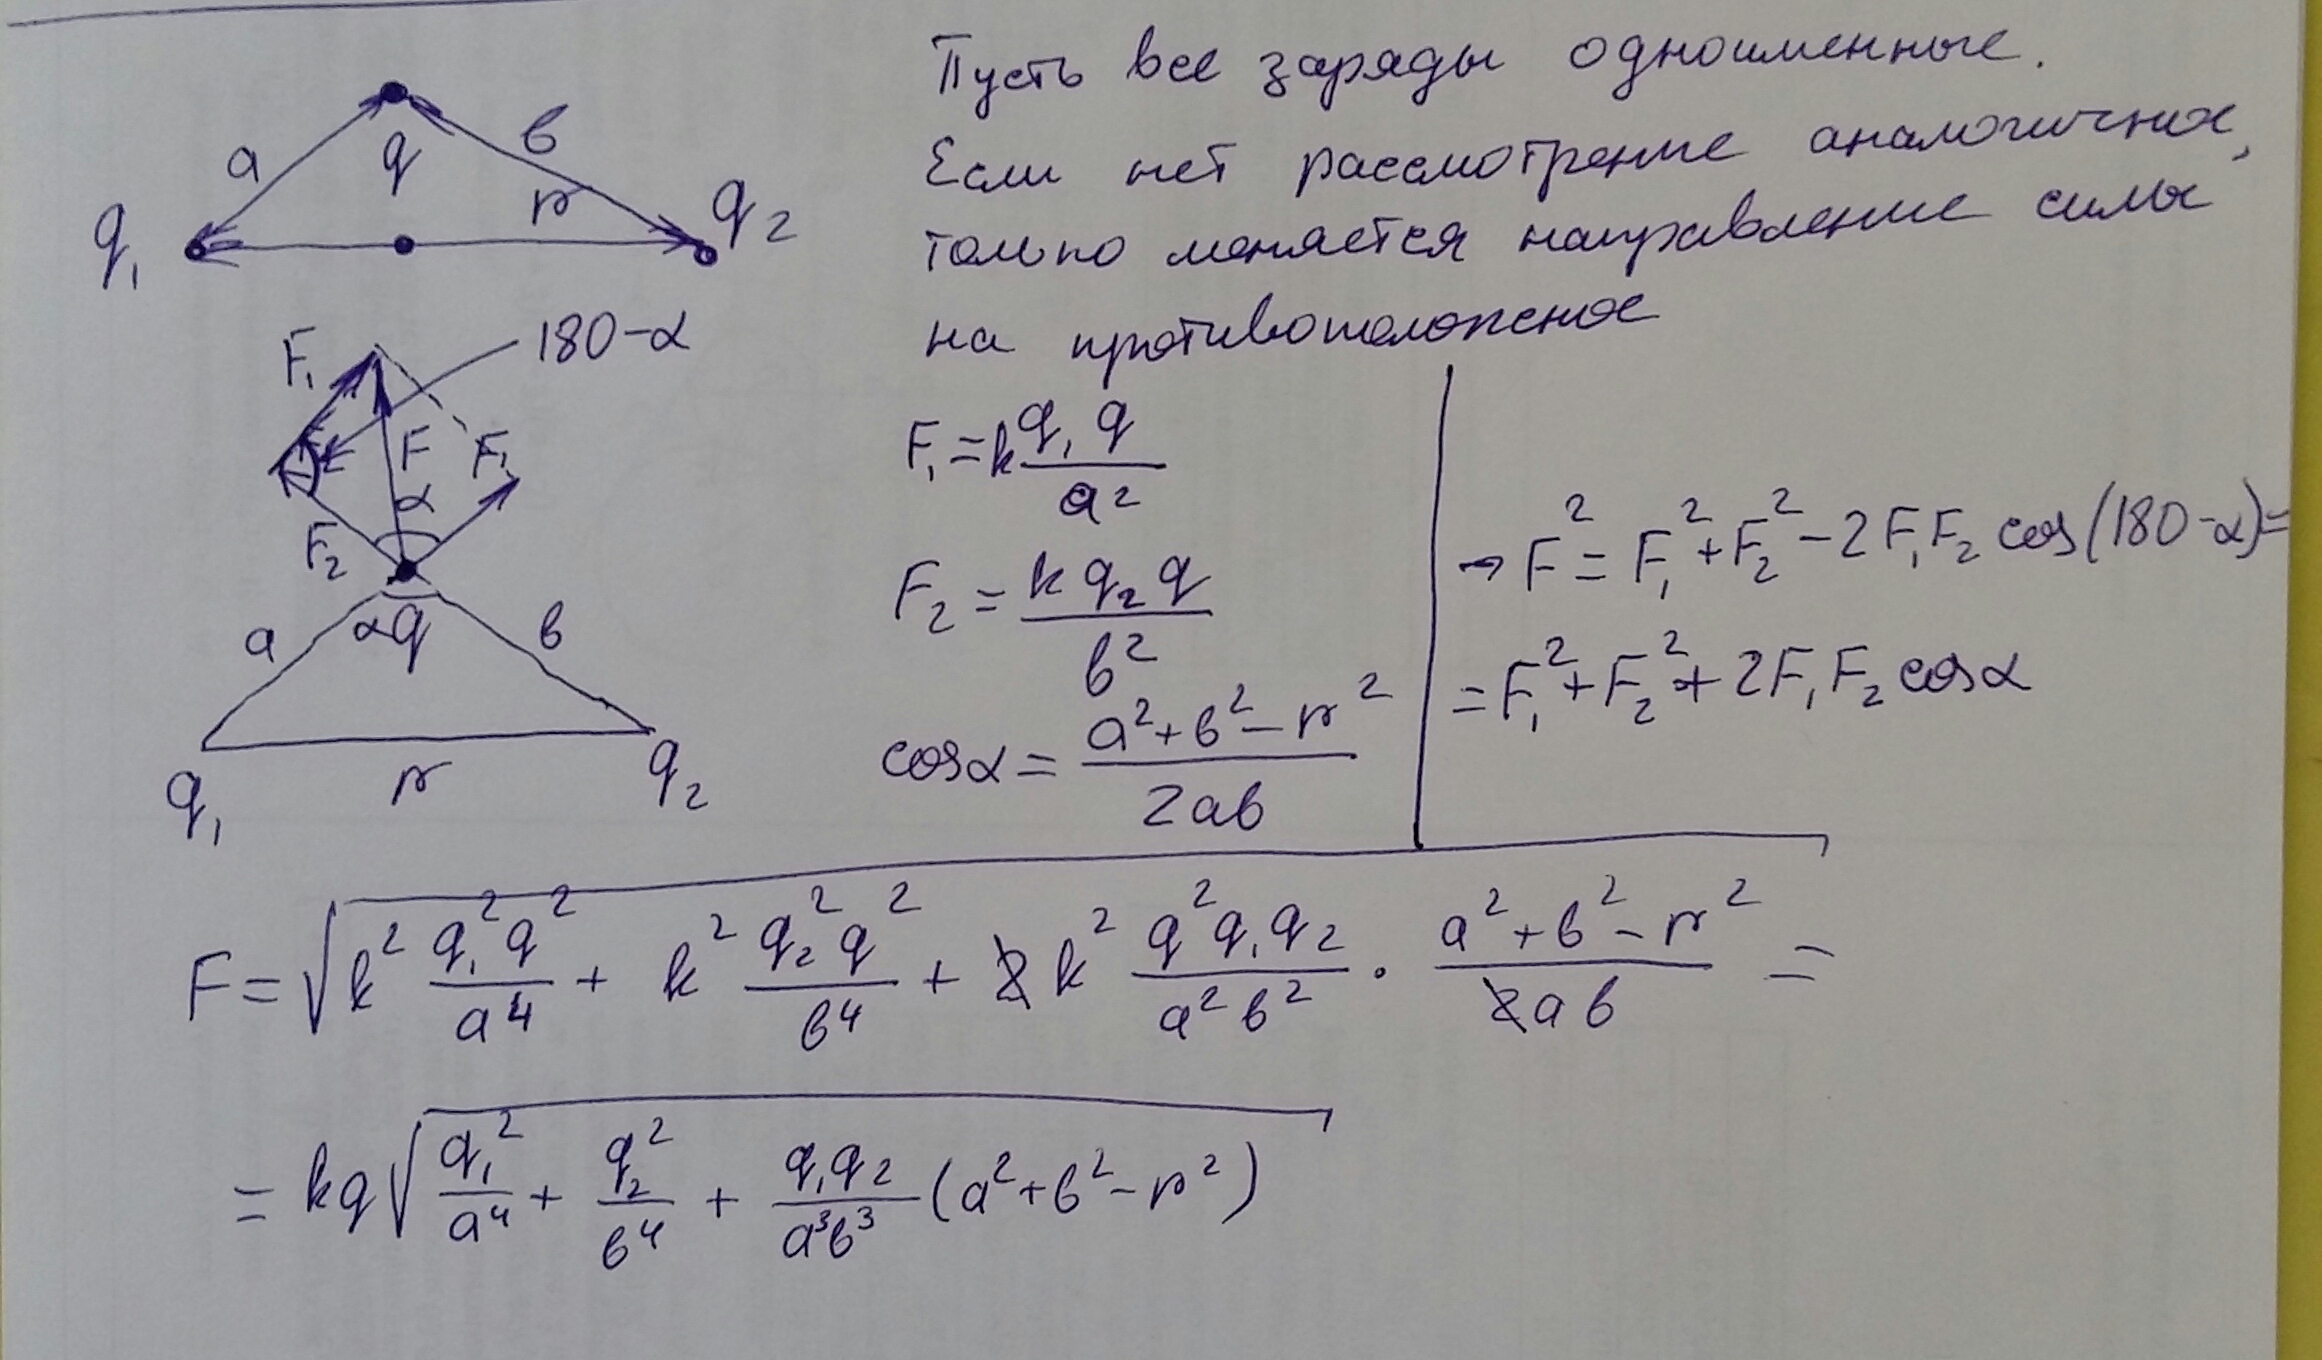 a
q
в
r
q₁
q₂
Пусть все заряды одноименные.
Если нет рассмотрение аналогичное,
только меняется направление силы
на противоположное
180-α
F₁
F
F₁
α
F₂
a
αq
в
q₁
r
q₂
F₁ = k q₁q / a²
F₂ = k q₂q / в²
cosα = (a²+в²-r²) / 2aв
→ F² = F₁² + F₂² - 2F₁F₂ cos(180-α) =
= F₁² + F₂² + 2F₁F₂ cosα
F = √(k² q₁²q²/a⁴ + k² q₂²q²/в⁴ + 2k² q²q₁q₂/a²в² · (a²+в²-r²)/2aв) =
= kq√(q₁²/a⁴ + q₂²/в⁴ + q₁q₂/a³в³ (a²+в²-r²))